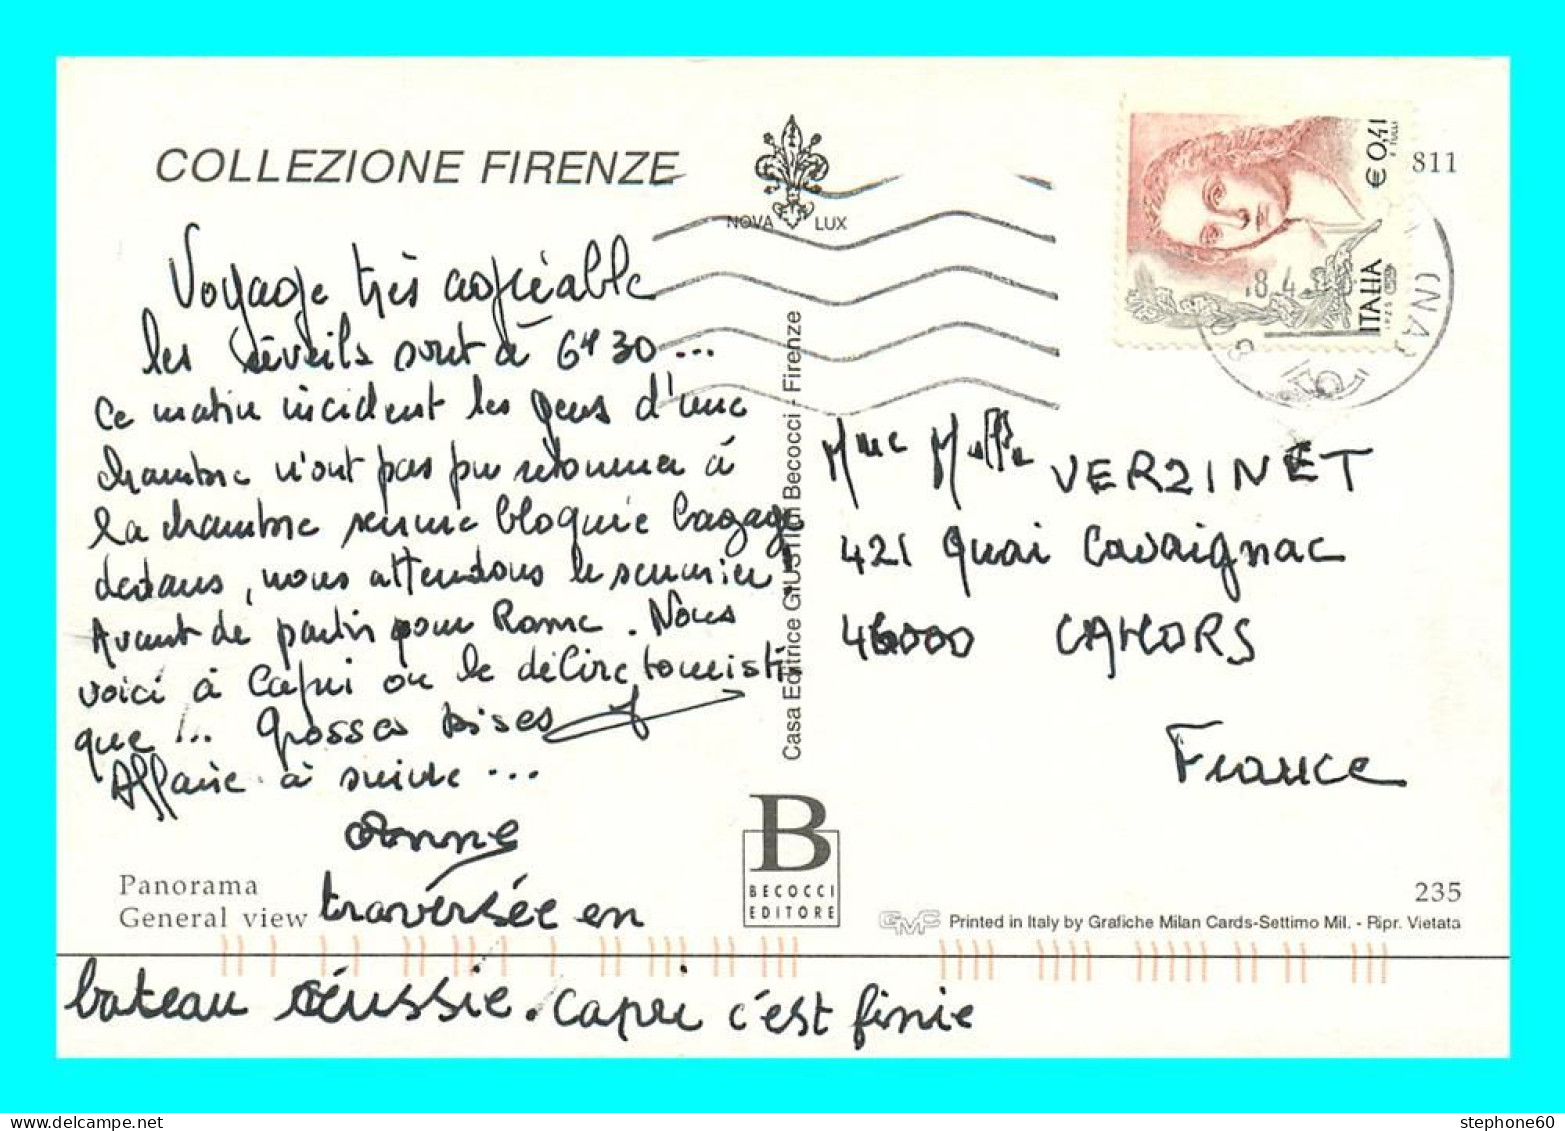 COLLEZIONE FIRENZE
NOVA LUX
€ 0,41
F. TULLI
ITALIA
811
8.4.
Voyage très agréable
les réveils sont à 6H30...
Ce matin incident les gens d'une
chambre n'ont pas pu retourner à
la chambre serrure bloquée bagage
dedans, nous attendons le serrurier!
Avant de partir pour Rome. Nous
voici à Capri ou le délire touristi
que!... Grosses bises
Affaire à suivre...
Anne
traversée en
bateau réussie. Capri c'est finie
Casa Editrice GIUSTI di Becocci - Firenze
Mme VERZINET
421 Quai Cavaignac
46000 CAHORS
France
Panorama
General view
B
BECOCCI
EDITORE
235
GMC Printed in Italy by Grafiche Milan Cards-Settimo Mil. - Ripr. Vietata
stephone60